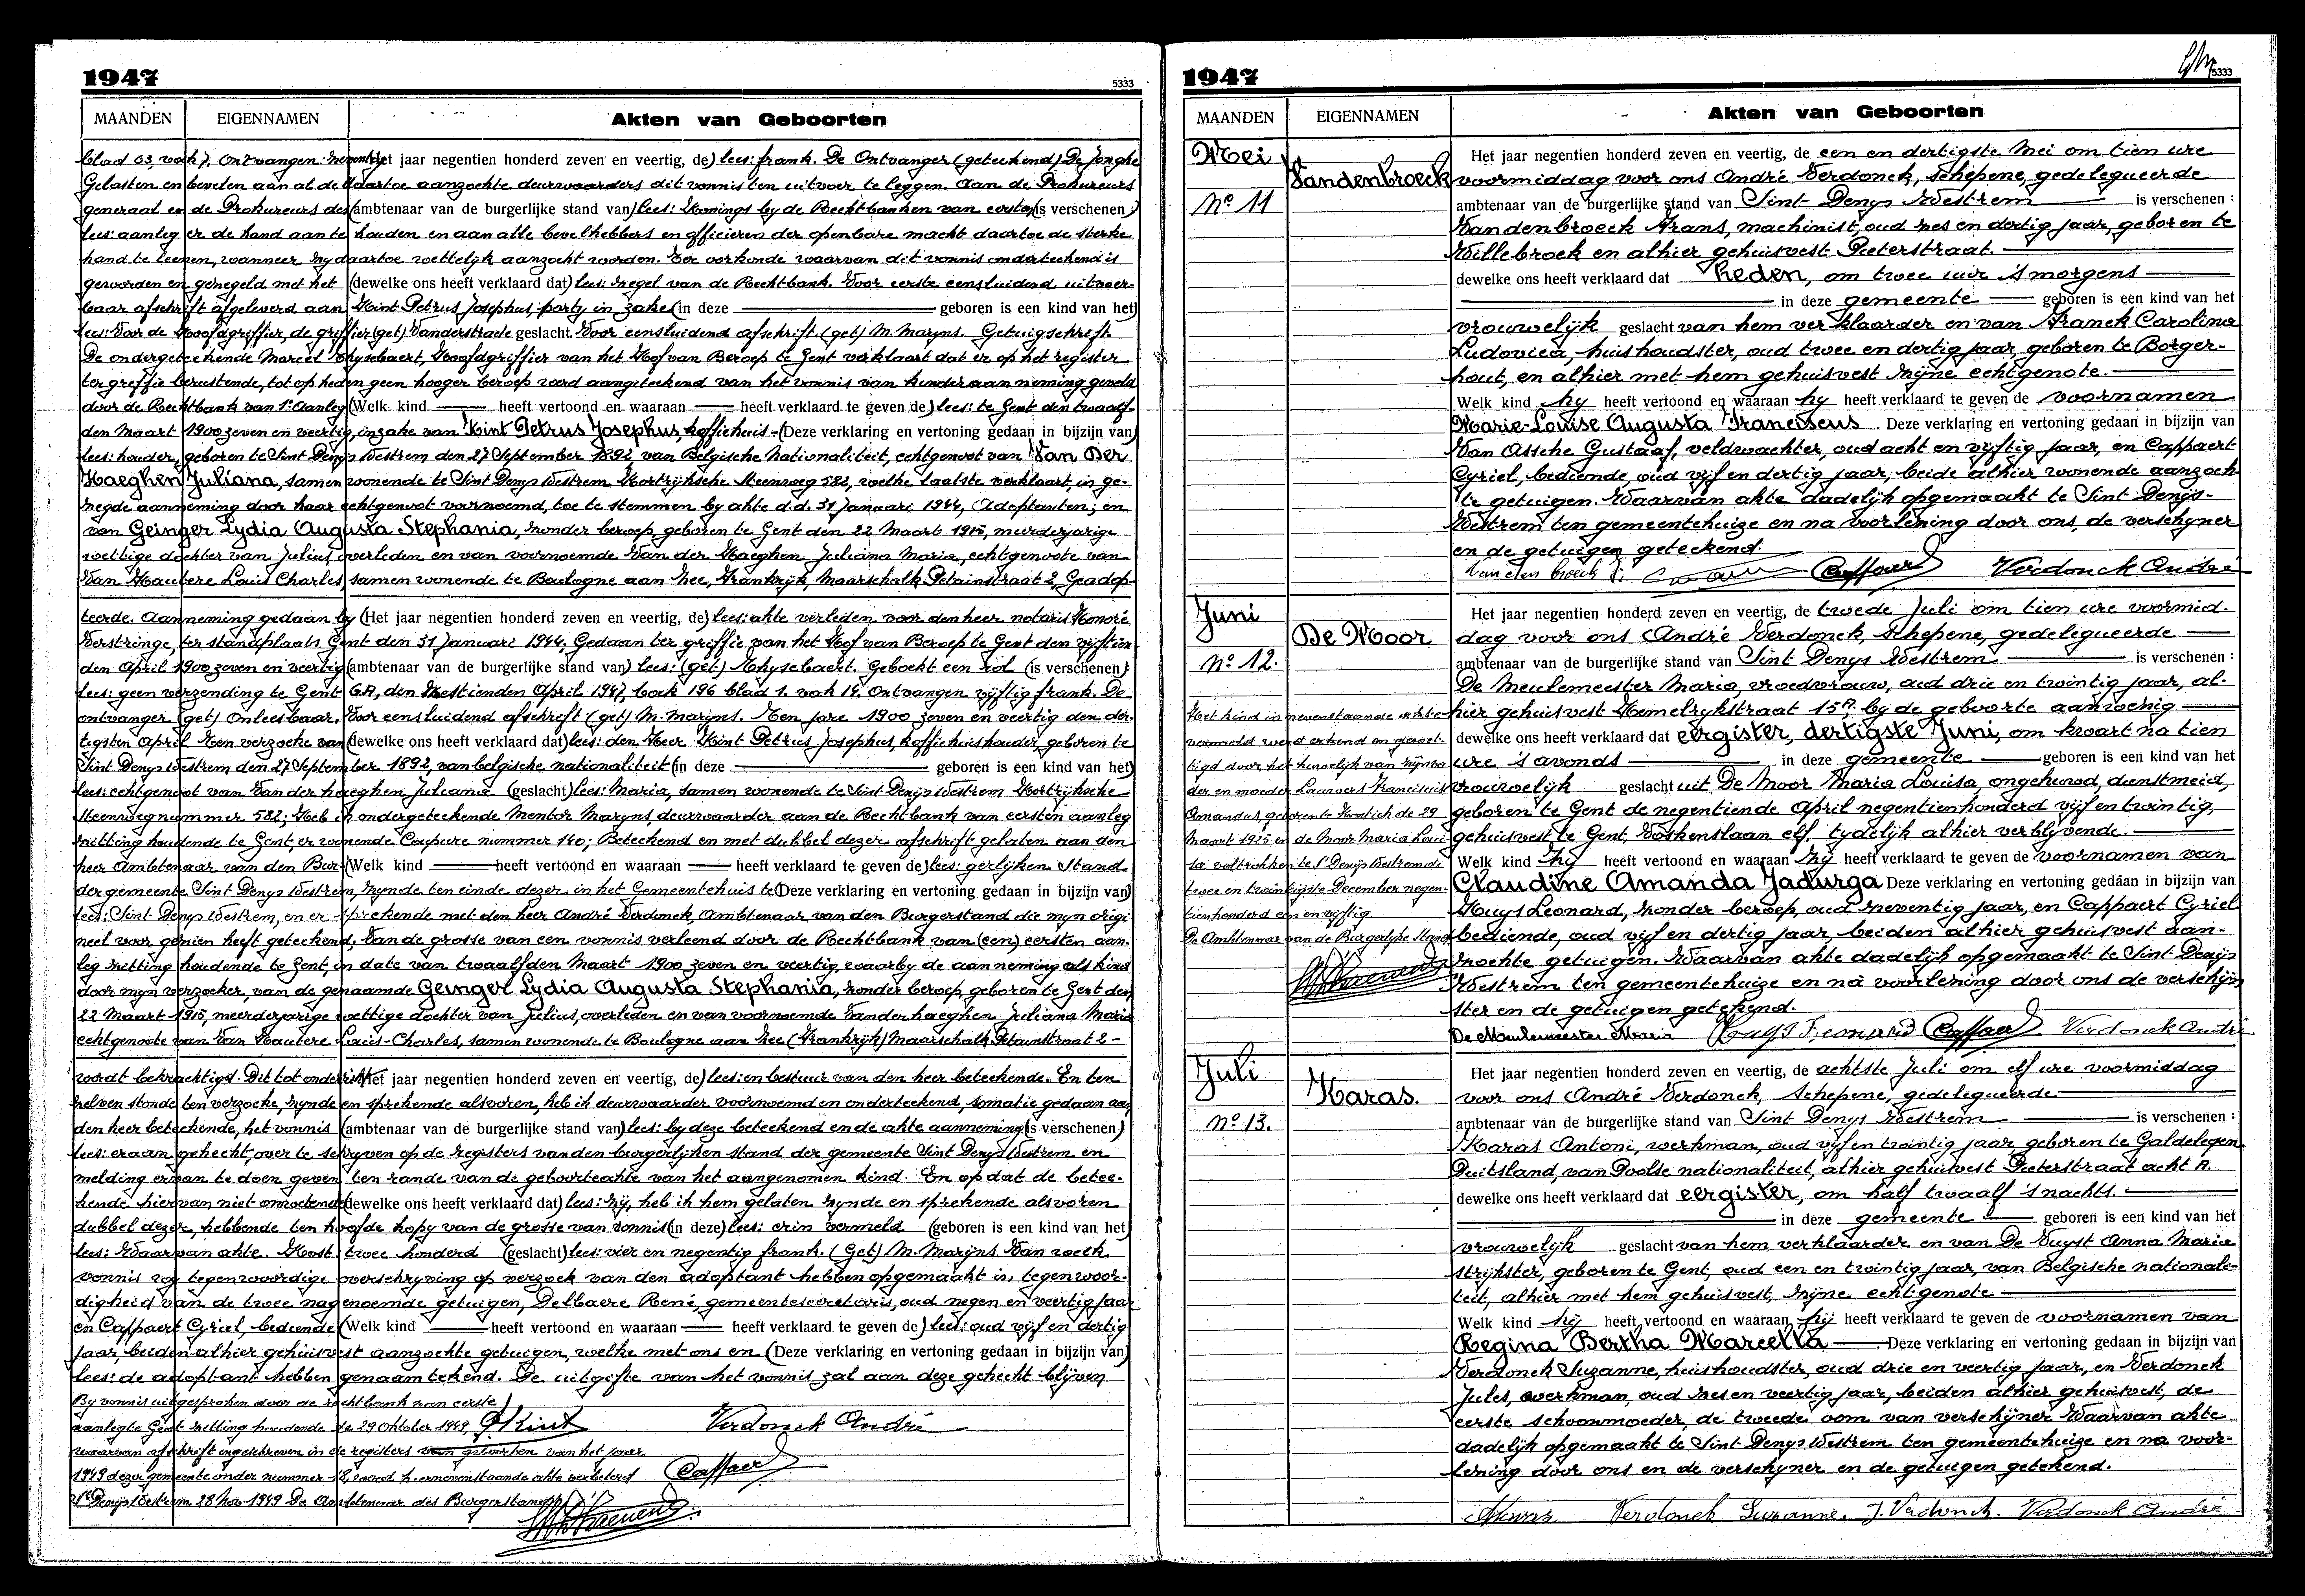 1947
5333
MAANDEN EIGENNAMEN Akten van Geboorten
blad 63, vak 7, Ontvangen: zeventig (Het jaar negentien honderd zeven en veertig, de) lees: frank. De Ontvanger (geteekend) De Jonghe
Gelasten en bevelen aan al de daartoe aanzochte deurwaarders dit vonnis ten uitvoer te leggen. Aan de Prokureurs
generaal en de Prokureurs des (ambtenaar van de burgerlijke stand van) lees: Konings by de Rechtbanken van eersten (is verschenen :)
lees: aanleg er de hand aan te houden en aan alle bevelhebbers en officieren der openbare macht daartoe de sterke
hand te leenen, wanneer zy daartoe wettelyk aanzocht worden. Ter oorkonde waarvan dit vonnis onderteekend is
geworden en gezegeld met het (dewelke ons heeft verklaard dat) lees: zegel van de Rechtbank. Voor eerste eensluidend uitvoer-
baar afschrift afgeleverd aan Kint Petrus Josephus, party in zake (in deze geboren is een kind van het)
lees: Voor de Hoofdgriffier, de griffier (get) Vanderstraele geslacht. Voor eensluidend afschrift (get) M. Maryns. Getuigschrift
De ondergeteekende Marcel Thysebaert, Hoofdgriffier van het Hof van Beroep te Gent verklaart dat er op het register
ter greffie berustende, tot op heden geen hooger beroep werd aangeteekend van het vonnis van kinderaanneming geveld
door de Rechtbank van 1e Aanleg (Welk kind heeft vertoond en waaraan heeft verklaard te geven de) lees: te Gent den twaalf-
den Maart 1900 zeven en veertig, inzake van Kint Petrus Josephus, koffiehuis- (Deze verklaring en vertoning gedaan in bijzijn van)
lees: houder, geboren te Sint Denys Westrem den 27 September 1892, van Belgische Nationaliteit, echtgenoot van Van Der
Haeghen Juliana, samen wonende te Sint Denys Westrem Kortrijksche Steenweg 582, welke laatste verklaart, in ge-
zegde aanneming door haar echtgenoot voornoemd, toe te stemmen by akte d.d. 31 Januari 1944, Adoptanten; en
van Geinger Lydia Augusta Stephania, zonder beroep, geboren te Gent den 22 Maart 1915, meerderjarige
wettige dochter van Julius, overleden en van voornoemde Van der Haeghen Juliana Maria, echtgenoote van
Van Hautere Louis Charles, samen wonende te Boulogne aan Zee, Frankrijk, Maarschalk Petainstraat 2, Geadop-
teerde. Aanneming gedaan by (Het jaar negentien honderd zeven en veertig, de) lees: akte verleden voor den heer notaris Honoré
Verstringe, ter standplaats Gent den 31 Januari 1944. Gedaan ter griffie van het Hof van Beroep te Gent den vijftien-
den April 1900 zeven en veertig (ambtenaar van de burgerlijke stand van) lees: (get) Thysebaert. Geboekt een rol (is verschenen)
lees: geen verzending te Gent G.A, den Zestienden April 1947, boek 196 blad 1. vak 14. Ontvangen vijftig frank. De
ontvanger (get) Onleesbaar. Voor eensluidend afschrift (get) M. Marijns. Ten jare 1900 zeven en veertig den der-
tigsten April Ten verzoeke van (dewelke ons heeft verklaard dat) lees: den Heer Kint Petrus Josephus, koffiehuishouder, geboren te
Sint Denys Westrem den 27 September 1892, van belgische nationaliteit (in deze geboren is een kind van het)
lees: echtgenoot van Van der haeghen Juliana (geslacht) lees: Maria, samen wonende te Sint Denijs Westrem Kortrijksche
Steenweg nummer 582; Heb ik ondergeteekende Mentor Maryns, deurwaarder aan de Rechtbank van eersten aanleg
zitting houdende te Gent, er wonende Coupure nummer 140; Beteekend en met dubbel dezer afschrift gelaten aan den
heer Ambtenaar van den Bur- (Welk kind heeft vertoond en waaraan heeft verklaard te geven de) lees: gerlijken Stand
der gemeente Sint Denys Westrem, zynde ten einde dezer in het Gemeentehuis te (Deze verklaring en vertoning gedaan in bijzijn van)
lees: Sint Denys Westrem, en er sprekende met den heer André Verdonck, Ambtenaar van den Burgerstand die myn origi-
neel voor gezien heeft geteekend. Van de grosse van een vonnis verleend door de Rechtbank van (een) eersten aan-
leg zitting houdende te Gent, in date van twaalfden Maart 1900 zeven en veertig, waarby de aanneming als kind
door myn verzoeker, van de genaamde Geinger Lydia Augusta Stephania, zonder beroep, geboren te Gent den
22 Maart 1915, meerderjarige wettige dochter van Julius, overleden en van voornoemde Vanderhaeghen Juliana Maria
echtgenoote van Van Hautere Louis-Charles, samen wonende te Boulogne aan Zee (Frankrijk) Maarschalk Petainstraat 2-
wordt bekrachtigd. Dit tot onderricht (Het jaar negentien honderd zeven en veertig, de) lees: en bestuur van den heer beteekende. En ten
zelven stonde ten verzoeke, zynde en sprekende alsvoren, heb ik deurwaarder voornoemd en onderteekend, somatie gedaan aan
den heer beteekende, het vonnis (ambtenaar van de burgerlijke stand van) lees: by deze beteekend en de akte aanneming (is verschenen)
lees: eraan gehecht, over te schryven op de registers van den burgerlijken stand der gemeente Sint Denys Westrem en
melding ervan te doen geven ten rande van de geboorteakte van het aangenomen kind. En opdat de betee-
kende hiervan niet onwetend (dewelke ons heeft verklaard dat) lees: zij, heb ik hem gelaten zynde en sprekende alsvoren
dubbel dezer, hebbende ten hoofde kopy van de grosse van vonnis (in deze) lees: erin vermeld (geboren is een kind van het)
lees: Waarvan akte. Kost twee honderd (geslacht) lees: vier en negentig frank. (Get) M. Marijns. Van welk
vonnis wy tegenwoordige overschryving op verzoek van den adoptant hebben opgemaakt in tegenwoor-
digheid van de twee nagenoemde getuigen, Delbaere René, gemeentesecretaris, oud negen en veertig jaar
en Cappaert Cyriel, bediende (Welk kind heeft vertoond en waaraan heeft verklaard te geven de) lees: oud vijf en dertig
jaar, beiden alhier gehuisvest aanzochte getuigen, welke met ons en (Deze verklaring en vertoning gedaan in bijzijn van)
lees: de adoptant hebben genaamtekend. De uitgifte van het vonnis zal aan deze gehecht blijven
By vonnis uitgesproken door de rechtbank van eerste
aanleg te Gent zitting houdende de 29 Oktober 1949, P Kint Verdonck André
waarvan afschrift ingeschreven in de registers van geboorten van het jaar
1949 dezer gemeente onder nummer 18, werd hiernevenstaande akte verbeterd Cappaert
St Denijs Westrem 28 Nov. 1949 De Ambtenaar des Burgerstands
1947
5333
MAANDEN EIGENNAMEN Akten van Geboorten
Mei
No 11
Vandenbroeck
Het jaar negentien honderd zeven en veertig, de een en dertigste Mei om tien ure
voormiddag voor ons André Verdonck, Schepene, gedelegueerde
ambtenaar van de burgerlijke stand van Sint-Denys Westrem is verschenen :
Vandenbroeck Frans, machinist, oud zes en dertig jaar, geboren te
Willebroek en alhier gehuisvest Pieterstraat.
dewelke ons heeft verklaard dat heden, om twee uur 's morgens
in deze gemeente geboren is een kind van het
vrouwelijk geslacht van hem verklaarder en van Franck Carolina
Ludovica, huishoudster, oud twee en dertig jaar, geboren te Borger-
hout, en alhier met hem gehuisvest zijne echtgenote.
Welk kind hy heeft vertoond en waaraan hy heeft verklaard te geven de voornamen
Marie-Louise Augusta Franciscus. Deze verklaring en vertoning gedaan in bijzijn van
Van Assche Gustaaf, veldwachter, oud acht en vijftig jaar, en Cappaert
Cyriel, bediende, oud vijf en dertig jaar, beide alhier wonende aanzoch-
te getuigen. Waarvan akte dadelijk opgemaakt te Sint-Denijs-
Westrem ten gemeentehuize en na voorlezing door ons, de verschyner
en de getuigen geteekend.
Van den broeck f. Cappaert Verdonck André
Juni
No 12.
De Moor
Het kind in nevenstaande akte
vermeld werd erkend en gewet-
tigd door het huwelijk van zijnen va-
der en moeder Lauwers Franciscus
Amandus, geboren te Kontich de 29
Maart 1925 en de Moor Maria Loui-
sa voltrokken te St Denijs Westrem de
twee en twintigste December negen-
tienhonderd een en vijftig
De Ambtenaar van de Burgerlijke Stand
Het jaar negentien honderd zeven en veertig, de tweede Juli om tien ure voormid-
dag voor ons André Verdonck, Schepene, gedelegueerde
ambtenaar van de burgerlijke stand van Sint Denys Westrem is verschenen :
De Meulemeester Maria, vroedvrouw, oud drie en twintig jaar, al-
hier gehuisvest Hemelrykstraat 15A, by de geboorte aanwezig
dewelke ons heeft verklaard dat eergister, dertigste Juni, om kwart na tien
ure 's avonds in deze gemeente geboren is een kind van het
vrouwelijk geslacht uit De Moor Maria Louisa, ongehuwd, dienstmeid,
geboren te Gent de negentiende April negentienhonderd vijf en twintig,
gehuisvest te Gent, Voskenslaan elf, tydelijk alhier verblyvende.
Welk kind zij heeft vertoond en waaraan zij heeft verklaard te geven de voornamen van
Claudine Amanda Jadurga Deze verklaring en vertoning gedaan in bijzijn van
Huys Leonard, zonder beroep, oud zeventig jaar, en Cappaert Cyriel
bediende, oud vijf en dertig jaar, beiden alhier gehuisvest aan-
zochte getuigen. Waarvan akte dadelijk opgemaakt te Sint Denijs
Westrem ten gemeentehuize en na voorlezing door ons de verschijn-
ster en de getuigen getekend.
De Meulemeester Maria Huys Leonard Cappaert Verdonck André
Juli
No 13.
Karas.
Het jaar negentien honderd zeven en veertig, de achtste Juli om elf ure voormiddag
voor ons André Verdonck, Schepene, gedelegueerde
ambtenaar van de burgerlijke stand van Sint Denys Westrem is verschenen :
Karas Antoni, werkman, oud vijf en twintig jaar, geboren te Galdelegen
Duitsland, van Poolse nationaliteit, alhier gehuisvest Pieterstraat acht A.
dewelke ons heeft verklaard dat eergister, om half twaalf 's nachts.
in deze gemeente geboren is een kind van het
vrouwelijk geslacht van hem verklaarder en van De Vuyst Anna Maria
strijkster, geboren te Gent, oud een en twintig jaar, van Belgische nationali-
teit, alhier met hem gehuisvest, zijne echtgenote
Welk kind hij heeft vertoond en waaraan hij heeft verklaard te geven de voornamen van
Regina Bertha Marcella Deze verklaring en vertoning gedaan in bijzijn van
Verdonck Suzanne, huishoudster, oud drie en veertig jaar, en Verdonck
Jules, werkman, oud zes en veertig jaar, beiden alhier gehuisvest, de
eerste schoonmoeder, de tweede oom van verschijner Waarvan akte
dadelijk opgemaakt te Sint Denys Westrem ten gemeentehuize en na voor-
lezing door ons en de verschyner en de getuigen getekend.
Verdonck Suzanne. J. Verdonck. Verdonck André